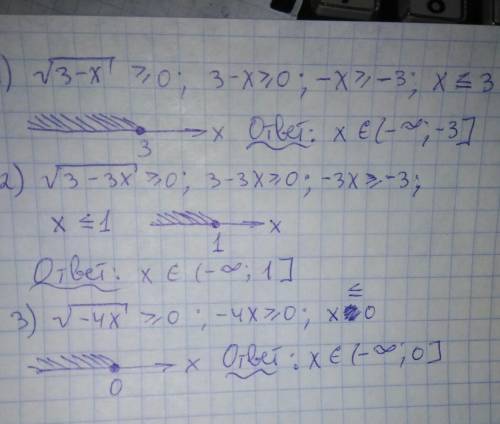 ) √3-x ≥0; 3-x≥0; -x≥-3; x≤3
3 x Ответ: x ∈(-∞;-3]
2) √3-3x ≥0; 3-3x≥0; -3x≥-3;
x≤1 1 x
Ответ: x ∈ (-∞; 1]
3) √-4x ≥0; -4x≥0; x≤0
0 x Ответ: x∈(-∞;0]